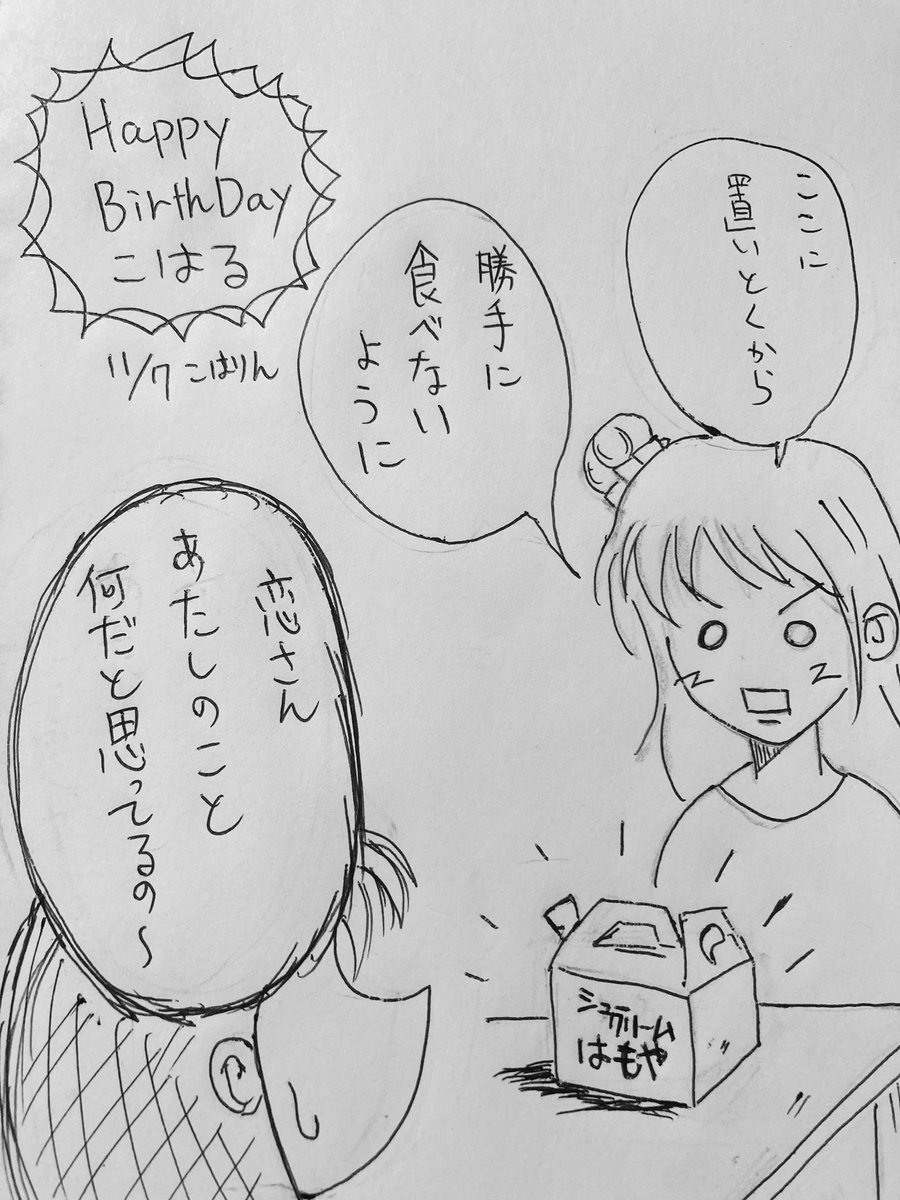 Happy
BirthDay
こはる
11/7 こはりん
ここに
置いとくから
勝手に
食べない
ように
恋さん
あたしのこと
何だと思ってるの～
シュークリーム
はもや